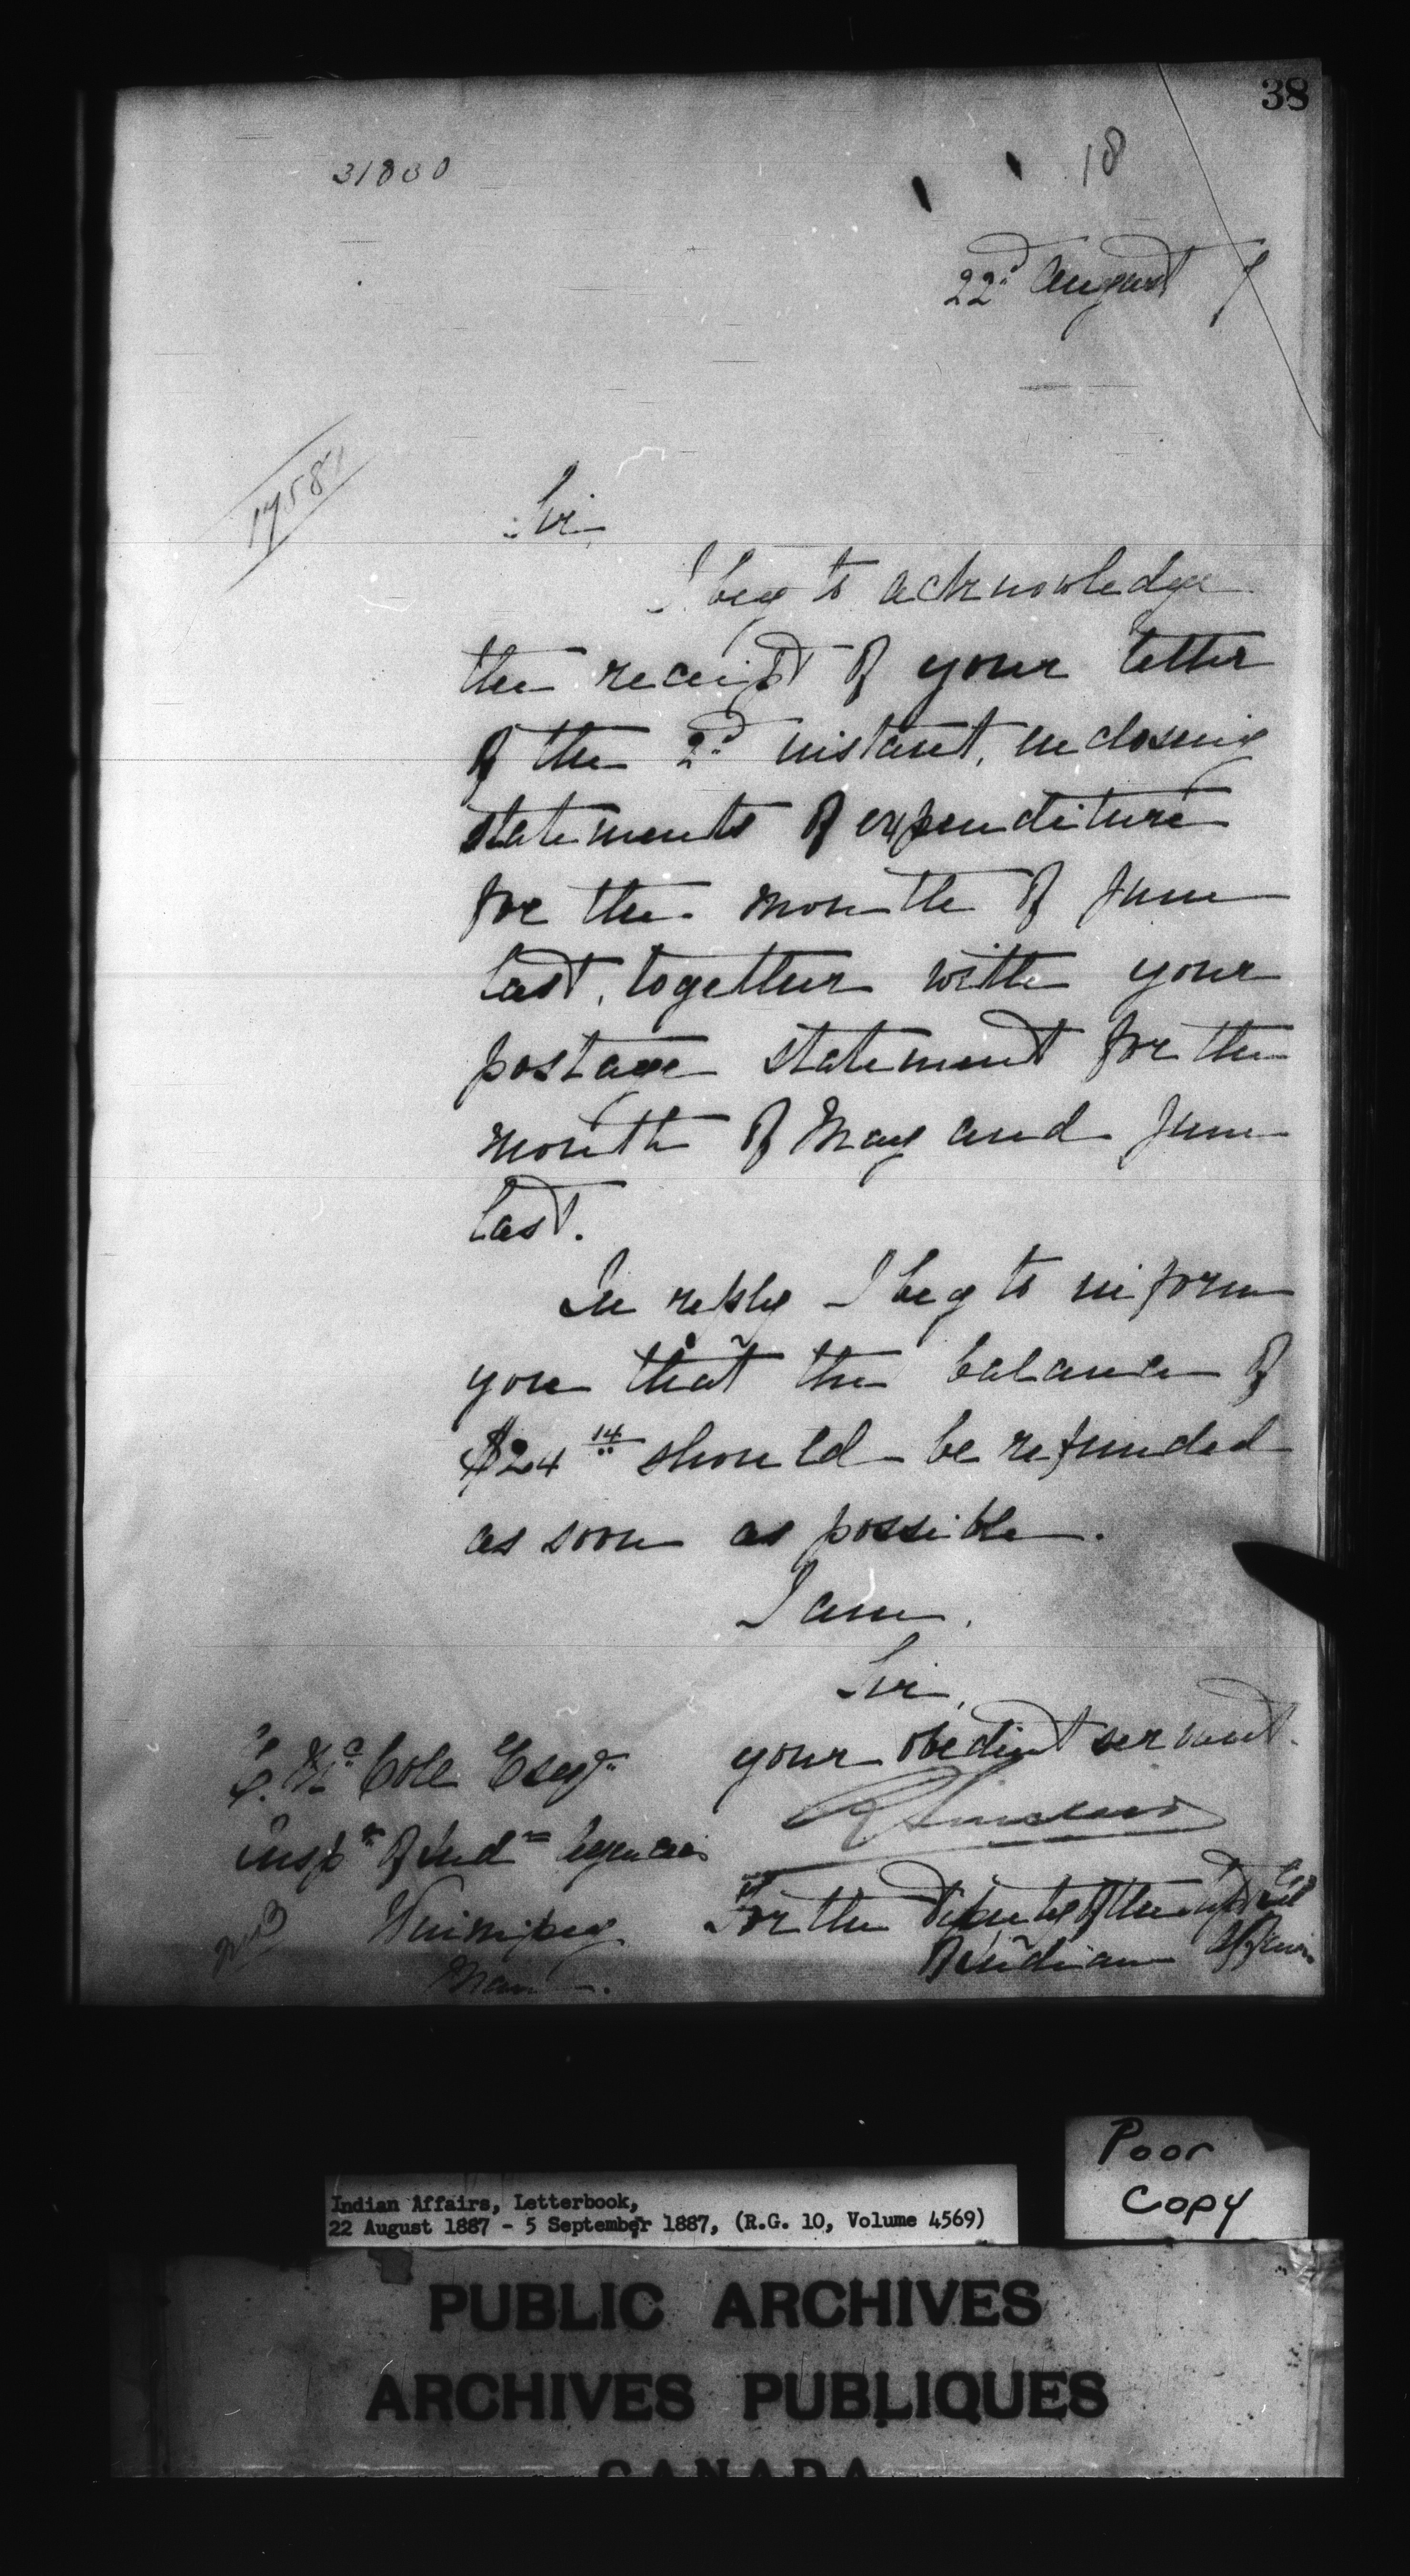 38
18
22d August 7
Sir,
I beg to acknowledge
the receipt of your letter
of the 2d instant, inclosing
statements of expenditure
for the month of June
last, together with your
postage statement for the
month of May and June
last.
In reply I beg to inform
you that the balance of
$24 14 should be refunded
as soon as possible.
I am,
Sir,
your obedient servant.
E. McColl Esqr.
Inspr of Indn Agencies
Winnipeg
Man.
For the Deputy of the Supt Genl
of Indian Affairs
Poor
Copy
Indian Affairs, Letterbook,
22 August 1887 - 5 September 1887, (R.G. 10, Volume 4569)
PUBLIC ARCHIVES
ARCHIVES PUBLIQUES
CANADA